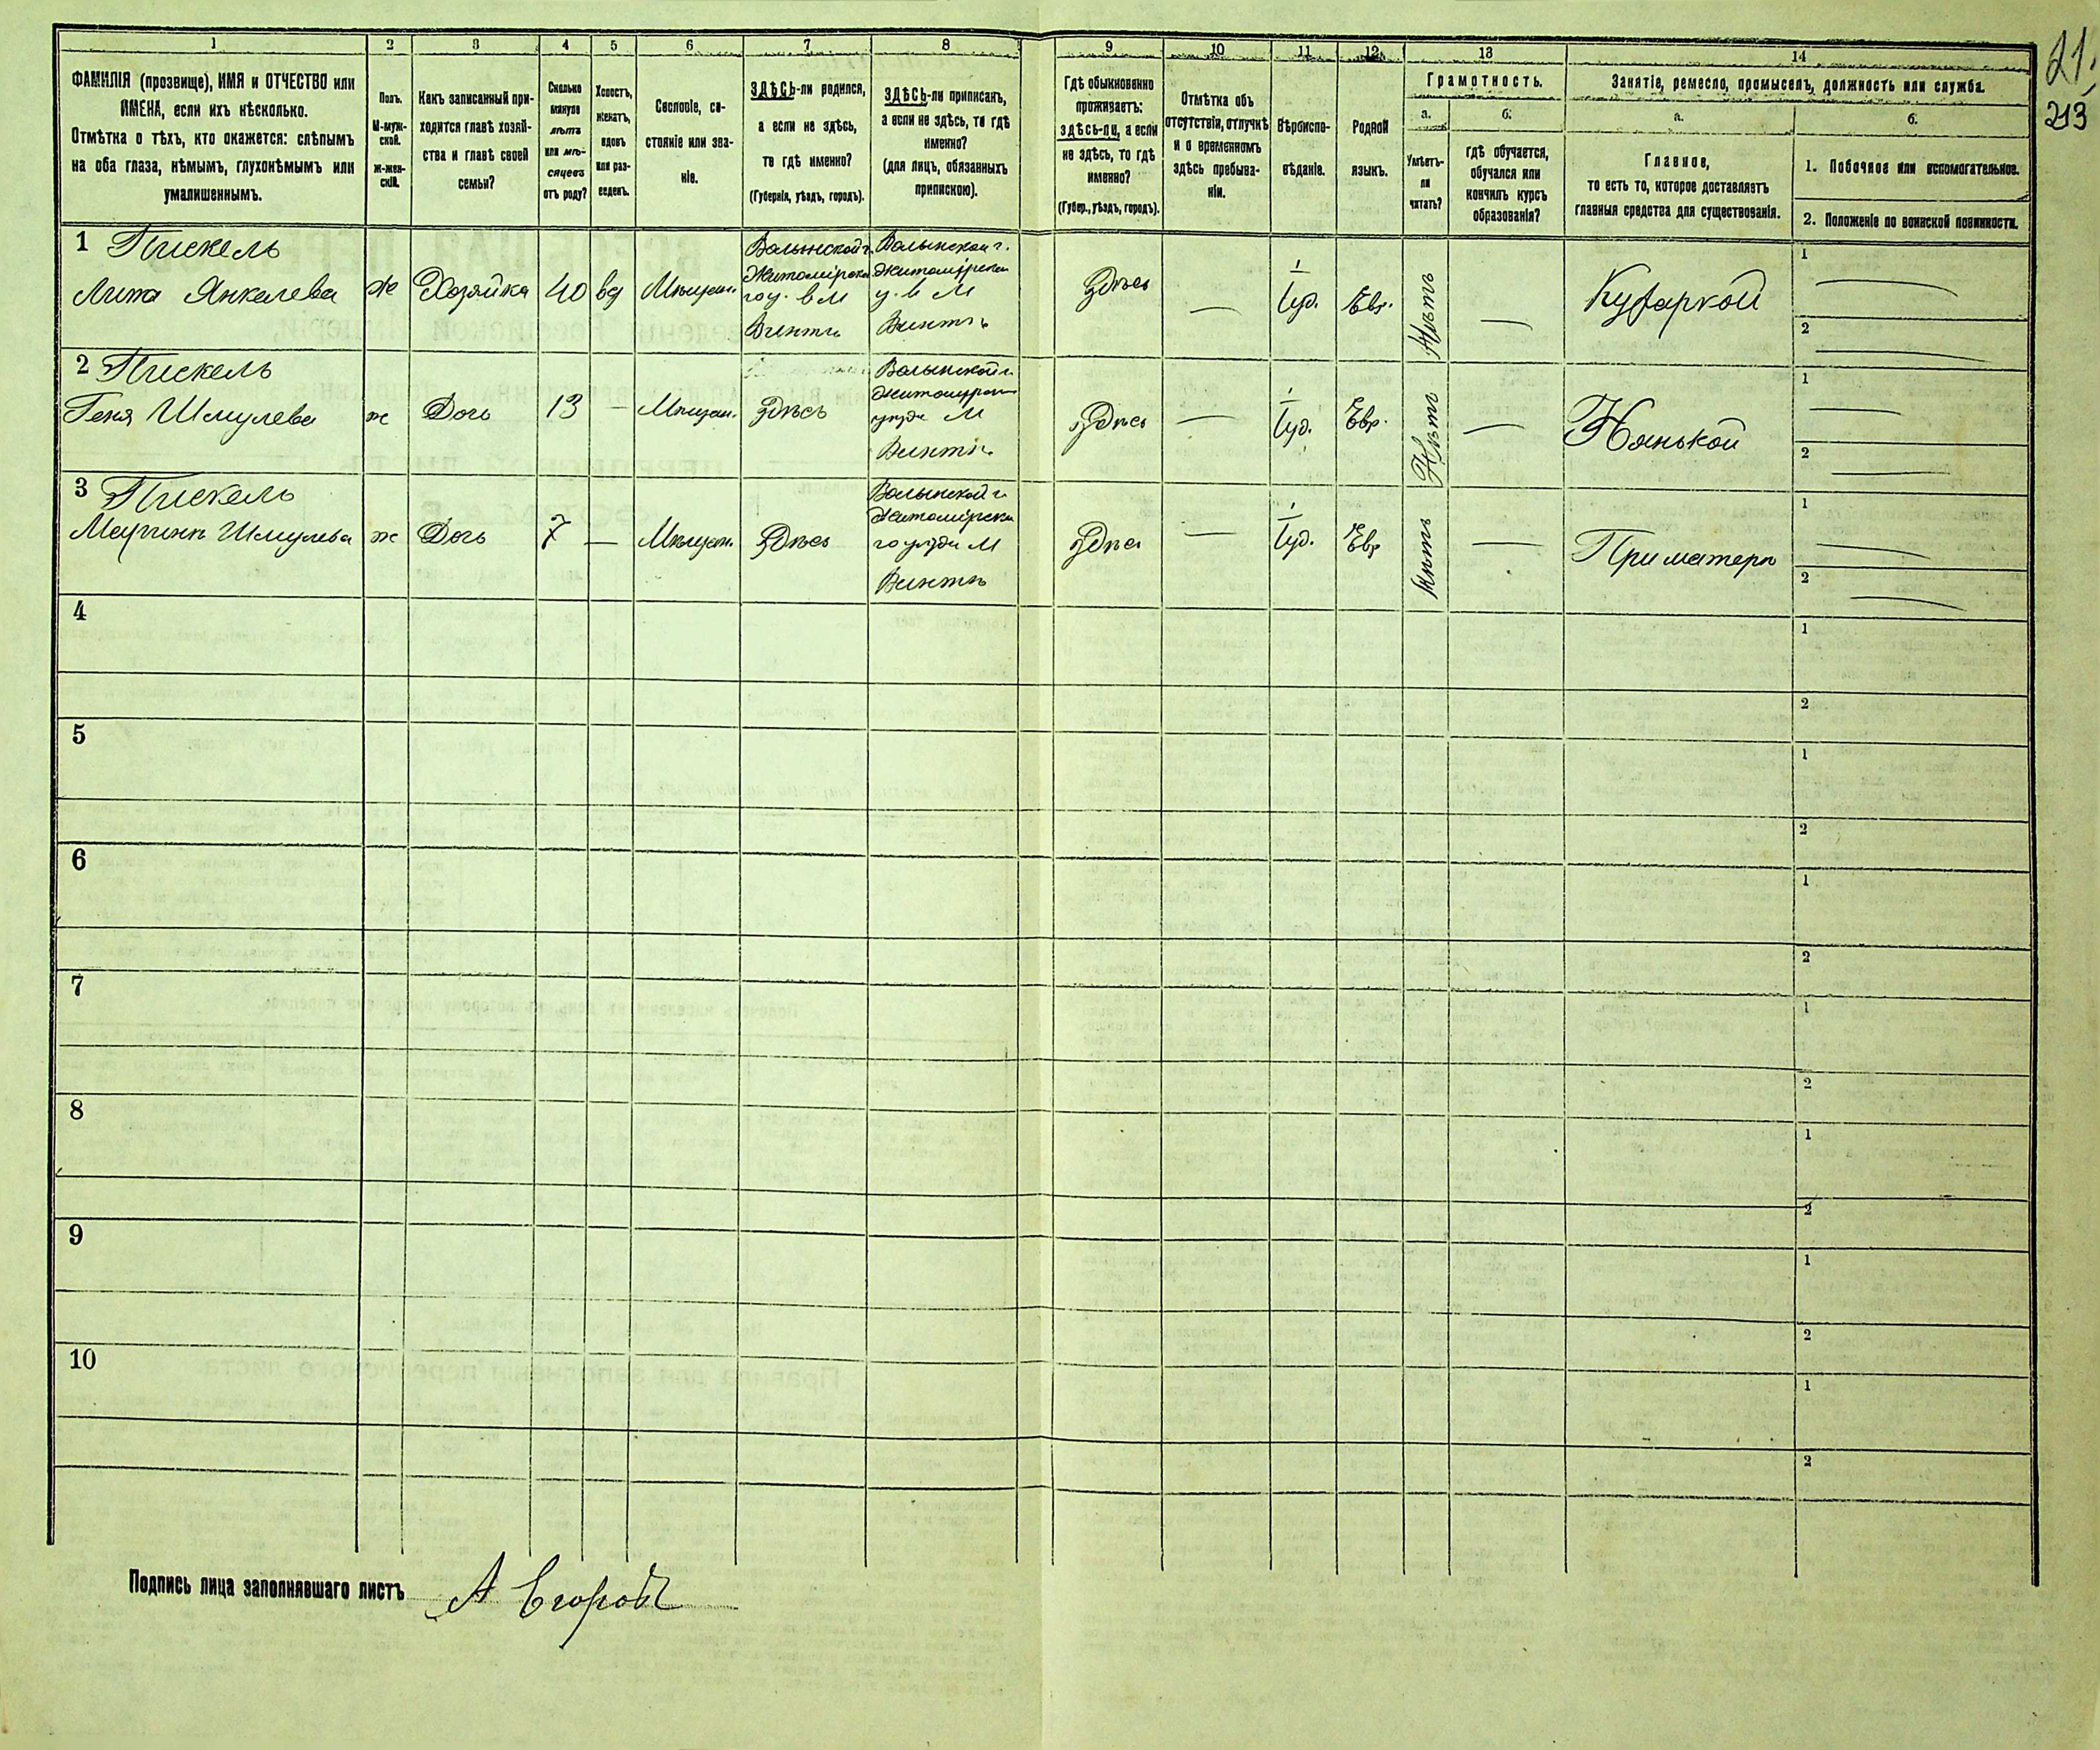 21.
213
1 2 3 4 5 6 7 8 9 10 11 12 13 14
ФАМИЛІЯ (прозвище), ИМЯ и ОТЧЕСТВО или
ИМЕНА, если ихъ нѣсколько.
Отмѣтка о тѣхъ, кто окажется: слѣпымъ
на оба глаза, нѣмымъ, глухонѣмымъ или
умалишеннымъ.
Полъ.
М-муж-
ской.
Ж-жен-
скій.
Какъ записанный при-
ходится главѣ хозяй-
ства и главѣ своей
семьи?
Сколько
минуло
лѣтъ
или мѣ-
сяцевъ
отъ роду?
Холостъ,
женатъ,
вдовъ
или раз-
веденъ.
Сословіе, со-
стояніе или зва-
ніе.
ЗДѢСЬ-ли родился,
а если не здѣсь,
то гдѣ именно?
(Губернія, уѣздъ, городъ).
ЗДѢСЬ-ли приписанъ,
а если не здѣсь, то гдѣ
именно?
(для лицъ, обязанныхъ
припискою).
Гдѣ обыкновенно
проживаетъ:
здѣсь-ли, а если
не здѣсь, то гдѣ
именно?
(Губер., уѣздъ, городъ).
Отмѣтка объ
отсутствіи, отлучкѣ
и о временномъ
здѣсь пребыва-
ніи.
Вѣроиспо-
вѣданіе.
Родной
языкъ.
Грамотность.
а.
Умѣетъ-
ли
читать?
б.
гдѣ обучается,
обучался или
кончилъ курсъ
образованія?
Занятіе, ремесло, промыселъ, должность или служба.
а.
Главное,
то есть то, которое доставляетъ
главныя средства для существованія.
б.
1. Побочное или вспомогательное.
2. Положеніе по воинской повинности.
1 Пискель
Лита Янкелева
ж
Хозяйка
40
вд
Мѣщан.
Волынской г.
Житомірска
го у. в М
Вчентъ
Волынской г.
Житомірска
у. в М
Здѣсь
—
Іуд.
Евр.
Нѣтъ
—
Кухаркой
1 —
2 —
2 Пискель
Геня Шмулева
ж
Дочь
13
—
Мѣщан.
Здѣсь
Волынской г.
уѣзда М
Здѣсь
—
Іуд.
Евр.
Нѣтъ
—
Нянькой
1 —
2 —
3 Пискель
Шмулева
ж
Дочь
7
—
Мѣщан.
Здѣсь
Волынской г.
Житомірска
го уѣзда М
Здѣсь
—
Іуд.
Евр
Нѣтъ
—
При матери
1 —
2 —
4
1
2
5
1
2
6
1
2
7
1
2
8
1
2
9
1
2
10
1
2
Подпись лица заполнявшаго листъ А Егоровъ